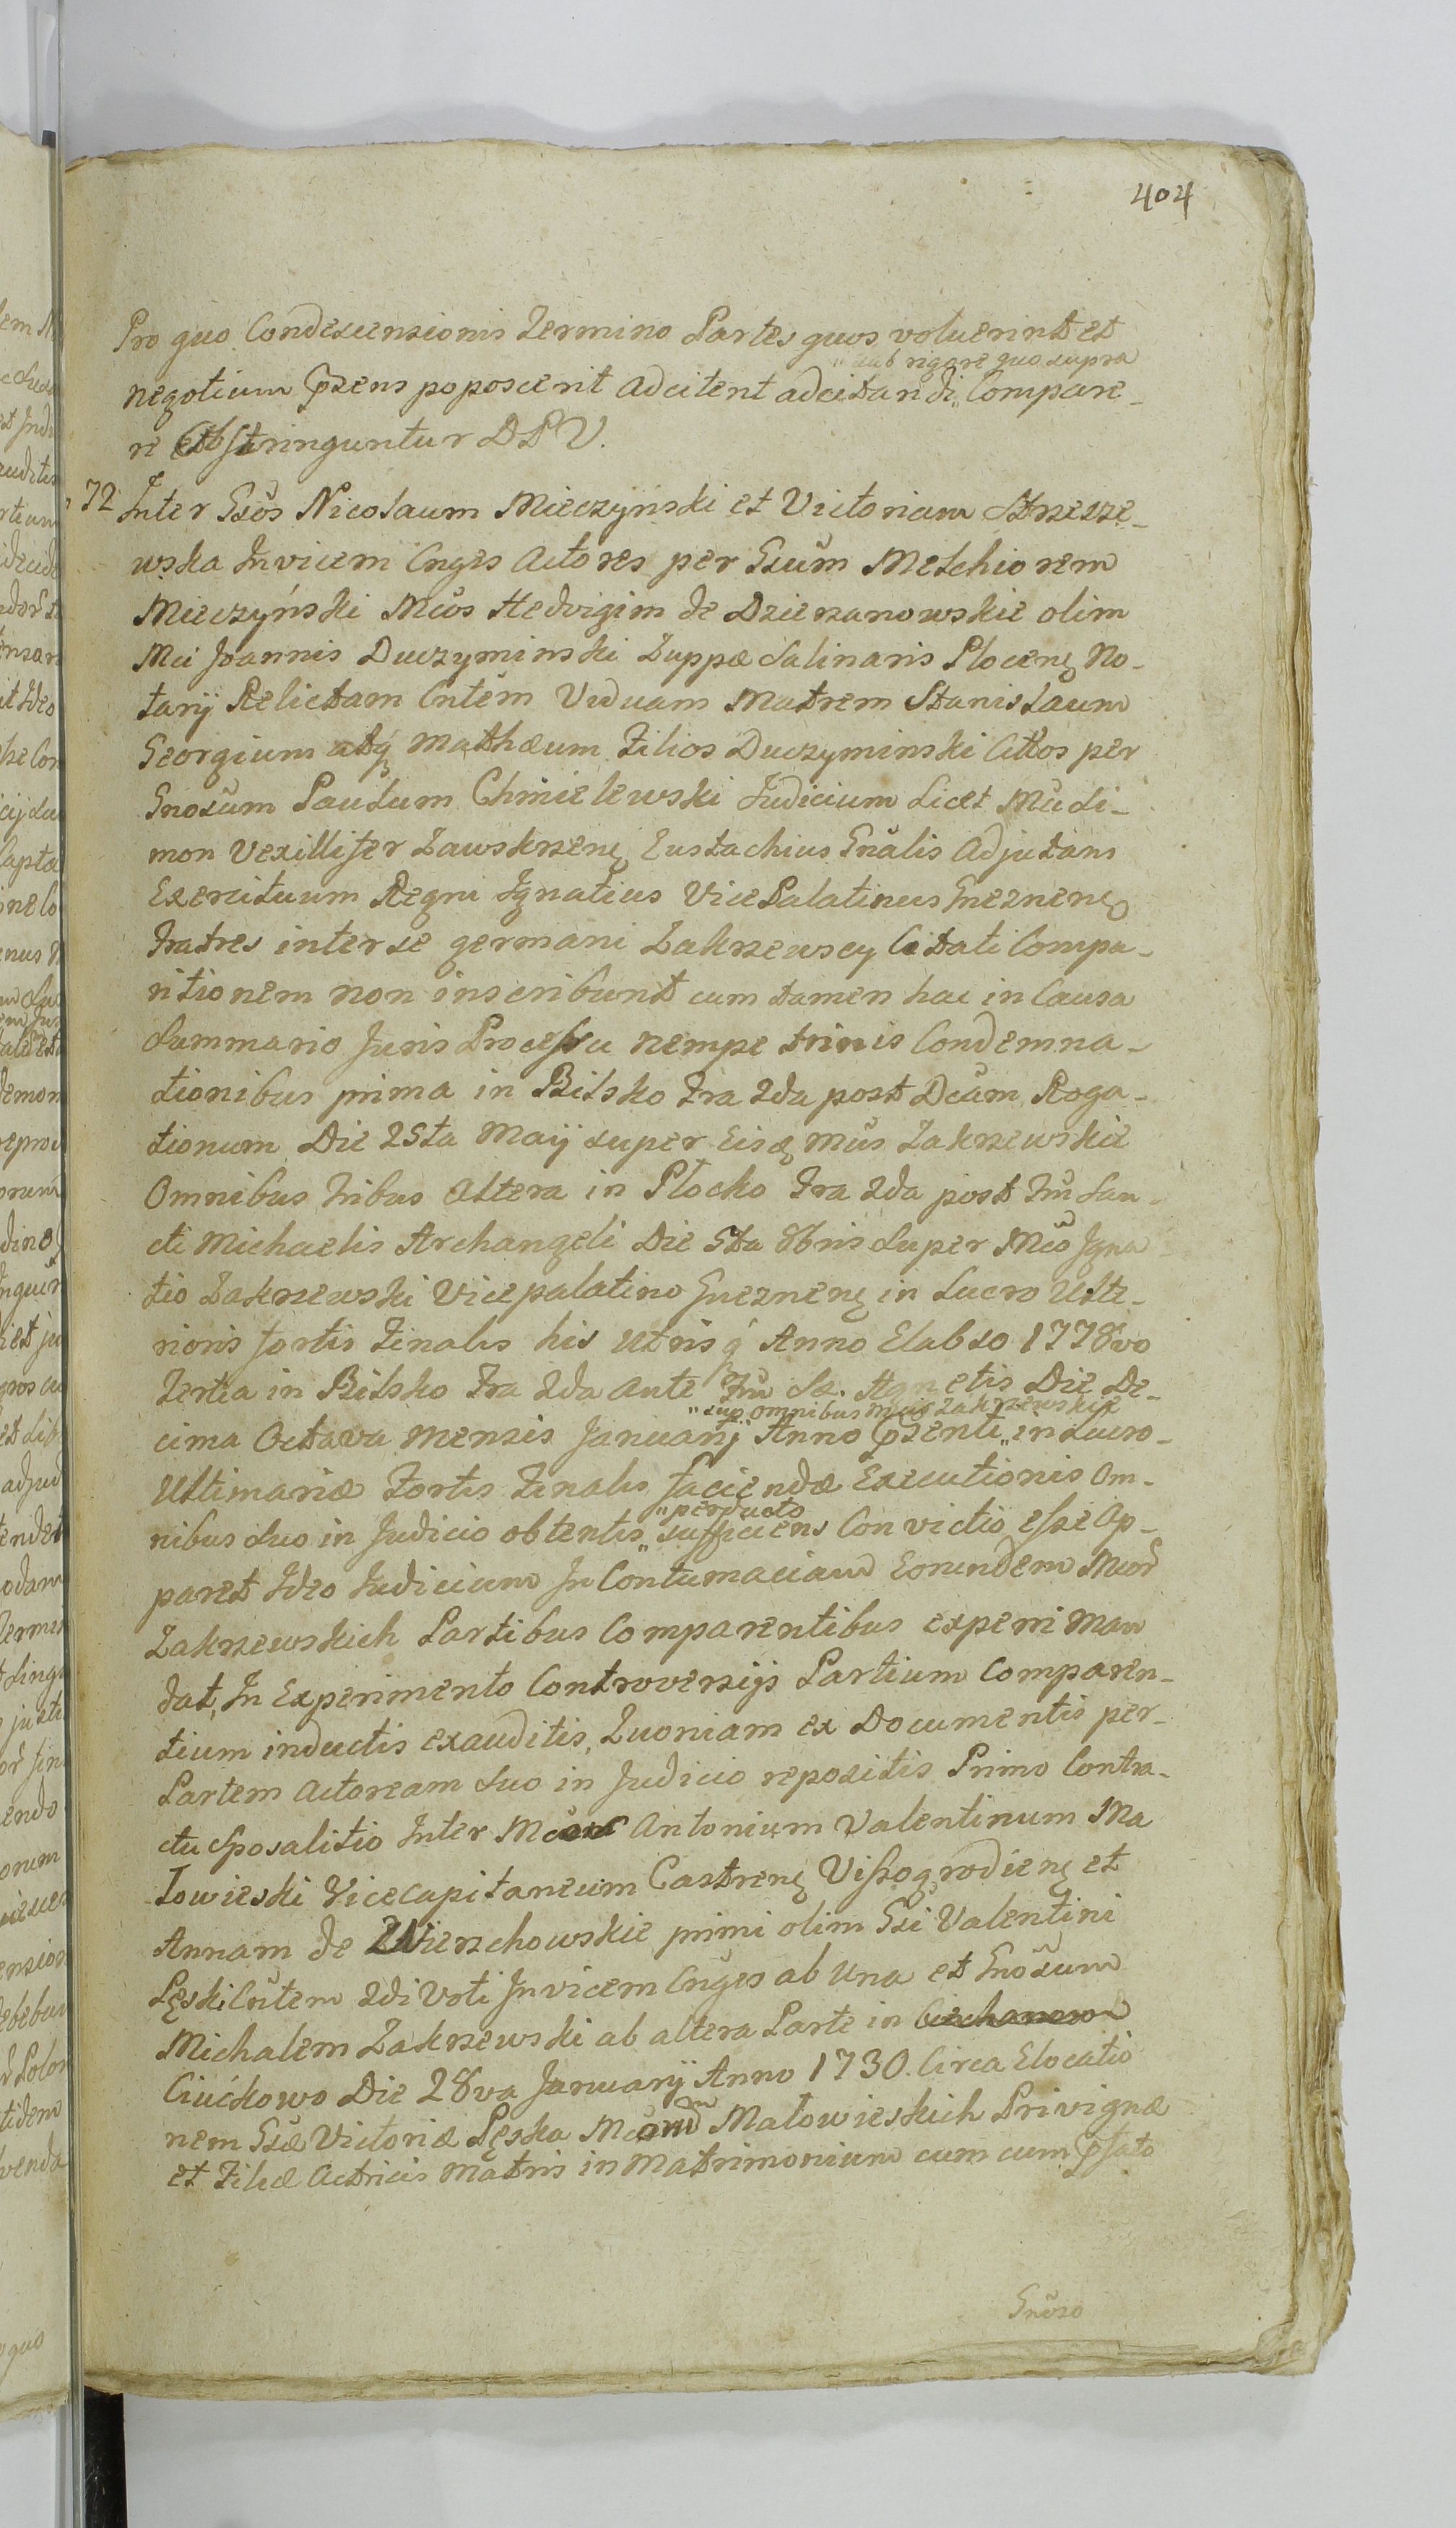 404
Pro quo Condescensionis Termino Partes quos voluerint et
„sub rigore quo supra
negotium Pzens poposcerit adcitent adcitandi „ Compare-
re Obstringuntur D P V.
72 Inter Gsos Nicolaum Mieczyński et Victoriam Strzesze-
wska Invicem Cnges Actores per Gsum Melchiorem
Mieczyński Mcos Hedvigim de Dzierzanowskie olim
Mci Joannis Duczyminski Zuppæ Salinaris Plocens No-
tarij Relictam Cntem Viduam Matrem Stanislaum
Georgium atq Mathæum Filios Duczyminski Cittos per
Gnosum Paulum Chmielewski Judicium Licet Mci Si-
mon Vexillifer Zawskrzens Eustachius Gnalis Adjutans
Exercituum Regni Ignatius VicePalatinus Gneznens
Fratres inter se germani Zakrzewscy Citati Compa-
ritionem non inscribunt cum tamen hac in Causa
Summario Juris Processu nempe trinis Condemna-
tionibus prima in Bilsko Fra 2da post Dcam Roga-
tionum Die 25ta Maij super Eisq Mcis Zakrzewskie
Omnibus Tribus Altera in Plocko Fra 2da post Fm San-
cti Michaelis Archangeli Die 5ta 8bris Super Mco Igna-
tio Zakrzewski Vicepalatino Gneznens in Lucro Ulte-
rioris Fortis Finalis his utrisq Anno Elabso 1778vo
Tertia in Bilsko Fra 2da Ante Fm Sæ. Agnetis Die De-
„sup omnibus Mcis Zakrzewskie
cima Octava Mensis Januarij Anno Pzenti „ in Lucro-
Ultimariæ Fortis Finalis faciendæ Executionis Om-
„ perducto
nibus Suo in Judicio obtentis „ sufficiens Convictio esse Ap-
paret Ideo Judicium In Contumaciam Eorundem Mcor
Zakrzewskich Partibus Comparentibus experiri Man
dat, In Experimento Controversijs Partium Comparen-
tium inductis exauditis, Quoniam ex Documentis per-
Partem Actoream Suo in Judicio repositis Primo Contra-
ctu Sposalitio Inter Mcos Antonium Valentinum Ma
łowieski Vicecapitaneum Castrens Vissogrodiens et
Annam de Wierzchowskie primi olim Gsi Valentini
Lęski Cntem 2di Voti Invicem Cnges ab Una et Gnosum
Michalem Zakrzewski ab altera Parte in Ciechanow
Ciućkowo Die 28va Januarij Anno 1730. Circa Elocatio
nem Gsæ Victoriæ Lęska Mcor Małowieskich Privignæ
et Filiæ Actricis Matris in Matrimonium cum cum Psato
Gnoso